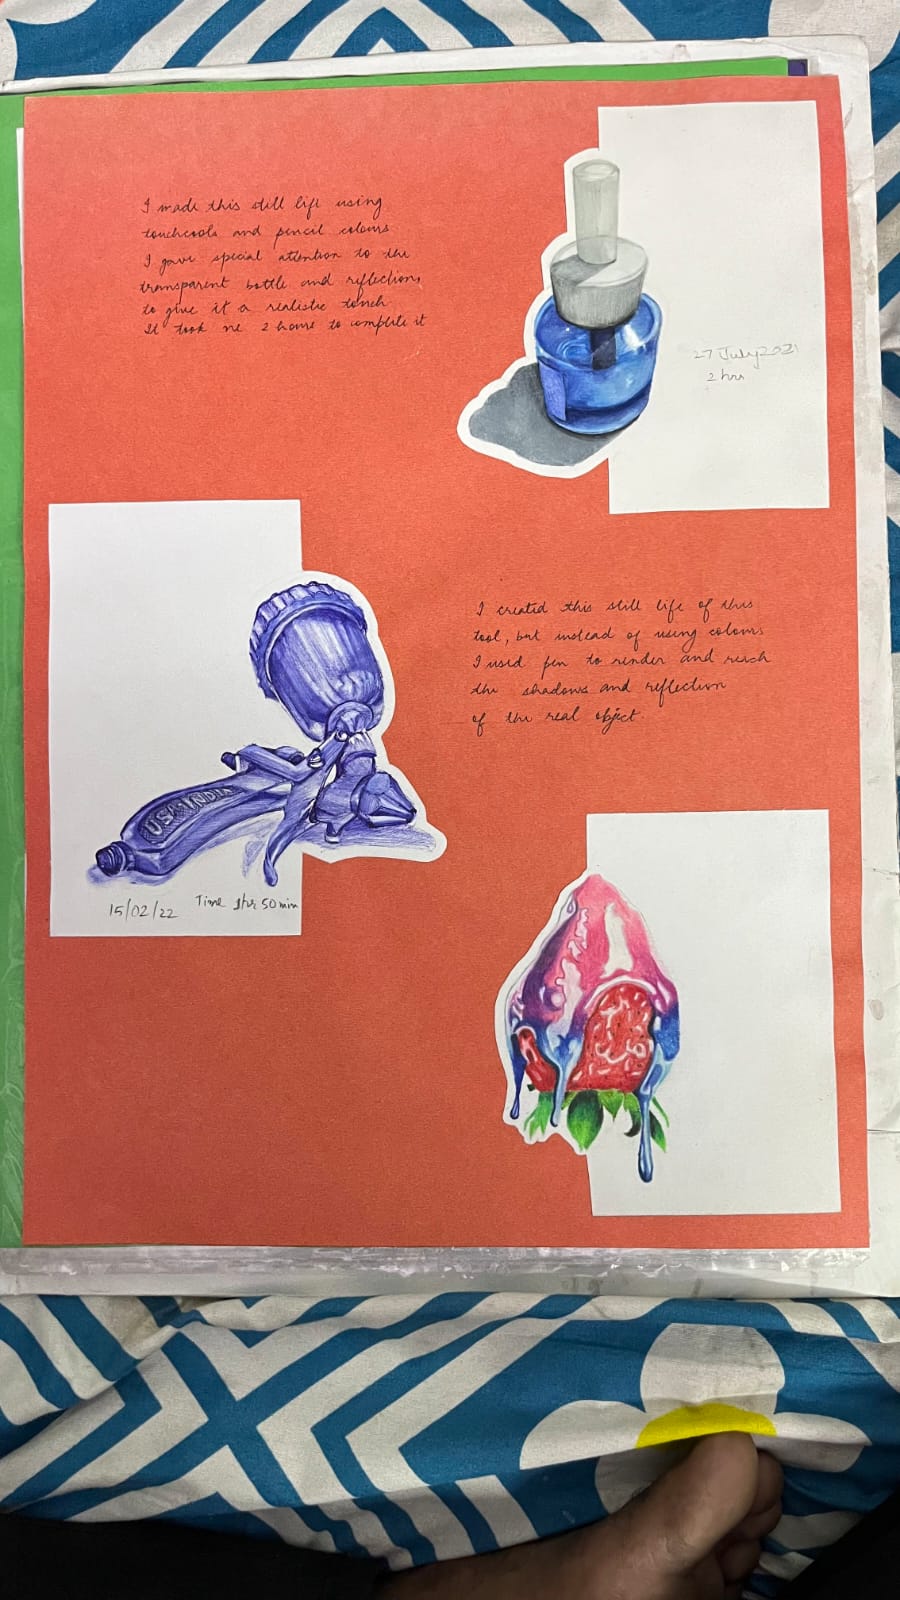 I made this still life using
touchcools and pencil colours
I gave special attention to the
transparent bottle and reflections,
to give it a realistic touch.
It took me 2 hours to complete it
27 July 2021
2 hrs
I created this still life of this
tool, but instead of using colours
I used pen to render and reach
the shadows and reflection
of the real object.
USA-INDIA
15/02/22
Time 1hr 50 min